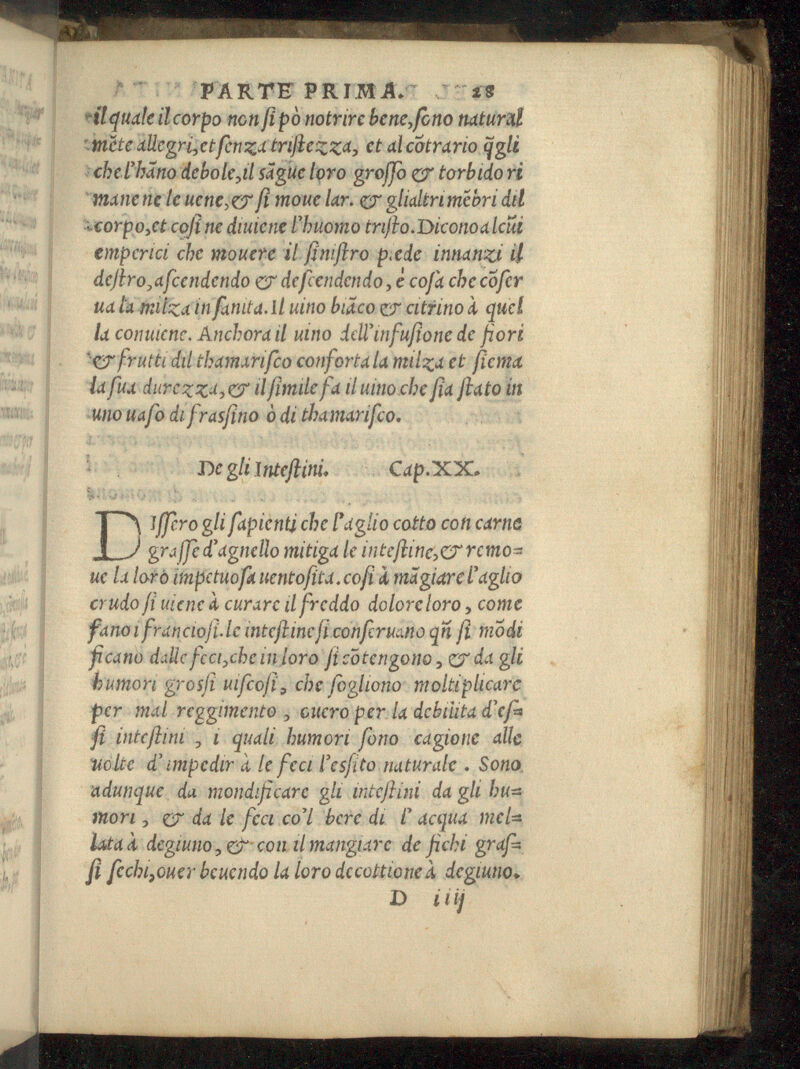 PARTE PRIMA. 28
il quale il corpo non ſi pò notrire bene, ſono natural
mēte allegri, et ſenza triſtezza, et al cōtrario q̄gli
che l'hāno debole, il sāgue loro groſſo & torbido ri
mane ne le uene, & ſi moue lar. & gli altri mēbri dil
corpo, et coſi ne diuiene l'huomo triſto. Dicono alcūi
emperici che mouere il ſiniſtro piede innanzi il
deſtro, aſcendendo & deſcendendo, è coſa che cōſer
ua la milza in ſanita. Il uino biāco & citrino à quel
la conuiene. Anchora il uino dell'infuſione de fiori
& frutti dil thamariſco conforta la milza et ſiema
la ſua durezza, & il ſimile fa il uino che ſia ſtato in
uno uaſo di frasſino ò di thamariſco.
De gli Inteſtini. Cap. XX.
DIſſero gli ſapienti che l'aglio cotto con carne
graſſe d'agnello mitiga le inteſtine, & remo=
ue la loro impetuoſa uentoſita. coſi à māgiare l'aglio
crudo ſi uiene à curare il freddo dolore loro, come
fano i francioſi. le inteſtine ſi conſeruano qn̄ ſi mōdi
ficano dalle feci, che in loro ſi cōtengono, & da gli
humori grosſi uiſcoſi, che ſogliono moltiplicare
per mal reggimento, ouero per la debilita d'eſ=
ſi inteſtini, i quali humori ſono cagione alle
uolte d'impedir à le feci l'esſito naturale. Sono
adunque da mondificare gli inteſtini da gli hu=
mori, & da le feci co'l bere di l'acqua mel=
lata à degiuno, & con il mangiare de fichi graſ=
ſi ſechi, ouer beuendo la loro decottione à degiuno.
D iiij